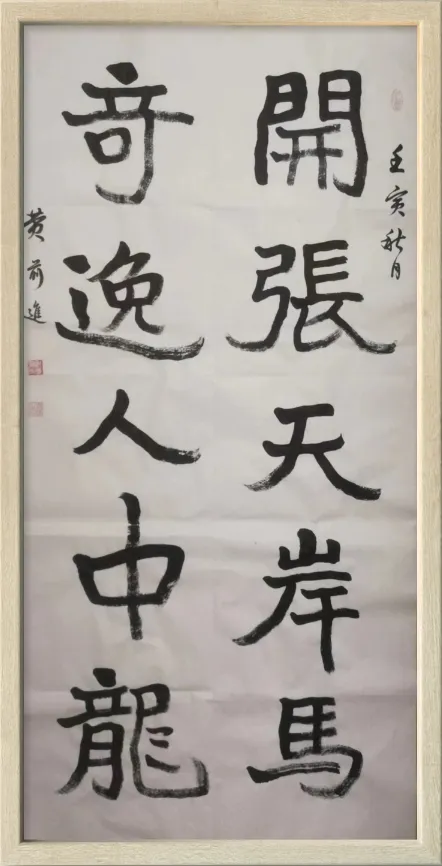 壬寅秋月
開張天岸馬
奇逸人中龍
黄前進